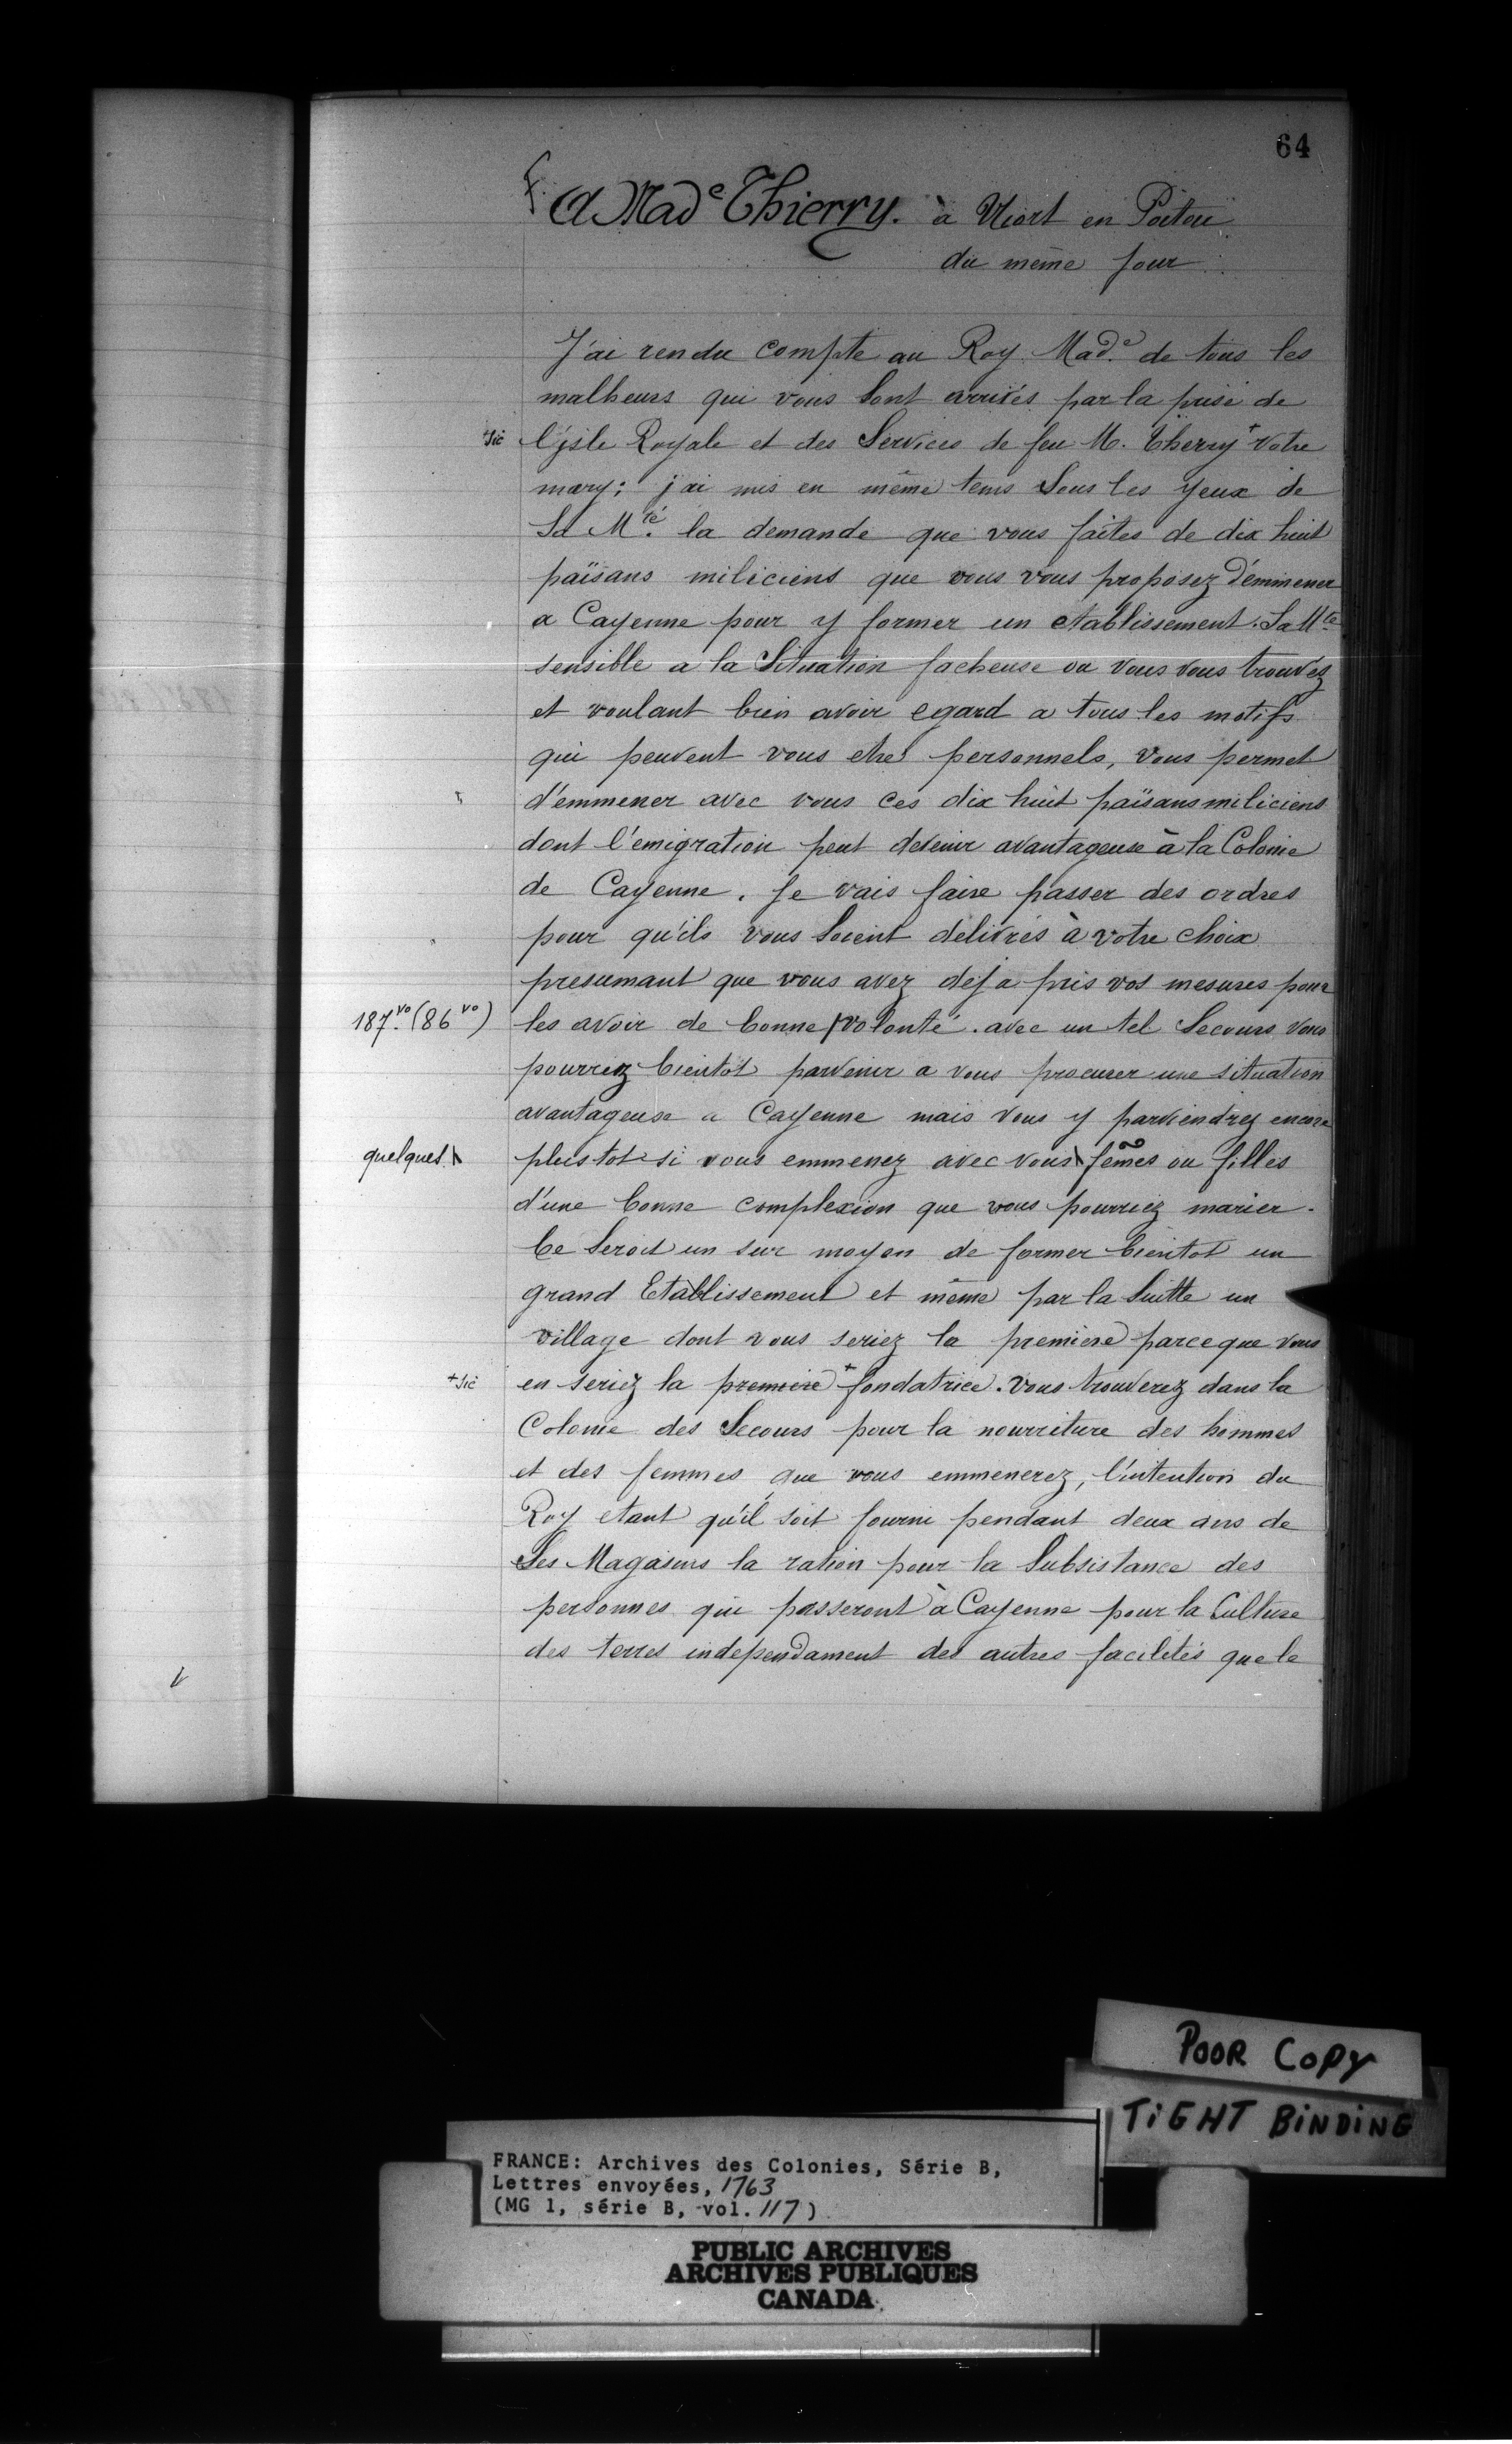 64
A Made Thierry. à Niort en Poitou
du même jour
J'ai rendu compte au Roy Made. de tous les
malheurs qui vous sont arrivés par la prise de
+sic l'jsle Royale et des Services de feu M. Therry + votre
mary; j'ai mis en même tems sous les yeux de
Sa Mté. la demande que vous faites de dix huit
païsans miliciens que vous vous proposez d'emmener
a Cayenne pour y former un etablissement. Sa Mté
sensible a la Situation facheuse ou vous vous trouvez
et voulant bien avoir egard a tous les motifs
qui peuvent vous etre personnels, vous permet
d'emmener avec vous ces dix huit païsans miliciens
dont l'emigration peut devenir avantageuse à la Colonie
de Cayenne. Je vais faire passer des ordres
pour qu'ils vous soient delivrés à votre choix
presumant que vous avez deja pris vos mesures pour
187.vo (86 vo) les avoir de bonne / volonté. avec un tel Secours vous
pourriez bientot parvenir a vous procurer une situation
avantageuse a Cayenne mais vous y parviendrez encore
quelques \ plustot si vous emmenez avec vous \ fem̃es ou filles
d'une bonne complexion que vous pourriez marier.
Ce seroit un sur moyen de former bientot un
grand Etablissement et même par la Suitte un
village dont vous seriez la premiere parceque vous
+sic en seriez la premiere + fondatrice. Vous trouverez dans la
Colonie des Secours pour la nourriture des hommes
et des femmes que vous emmenerez, l'intention du
Roy etant qu'il soit fourni pendant deux ans de
Ses Magasins la ration pour la Subsistance des
personnes qui passeront à Cayenne pour la Culture
des terres independament des autres facilités que le
POOR COPY
TIGHT BINDING
FRANCE: Archives des Colonies, Série B,
Lettres envoyées, 1763
(MG 1, série B, vol. 117)
PUBLIC ARCHIVES
ARCHIVES PUBLIQUES
CANADA